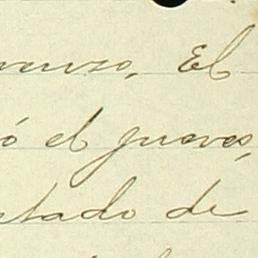 El
ó el jueves,
stado de